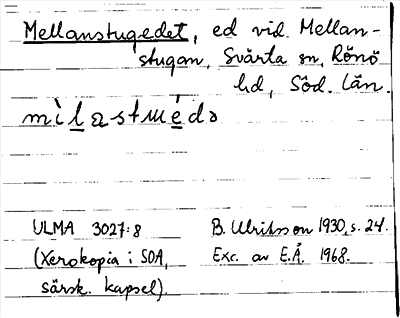 Mellanstugedet, ed vid Mellan-
stugan, Svärta sn, Rönö
hd, Söd. län.
mìlastuédə
ULMA 3027:8
(Xerokopia i SOA,
särsk. kapsel)
B. Ulriksson 1930, s. 24.
Exc. av E.Å. 1968.